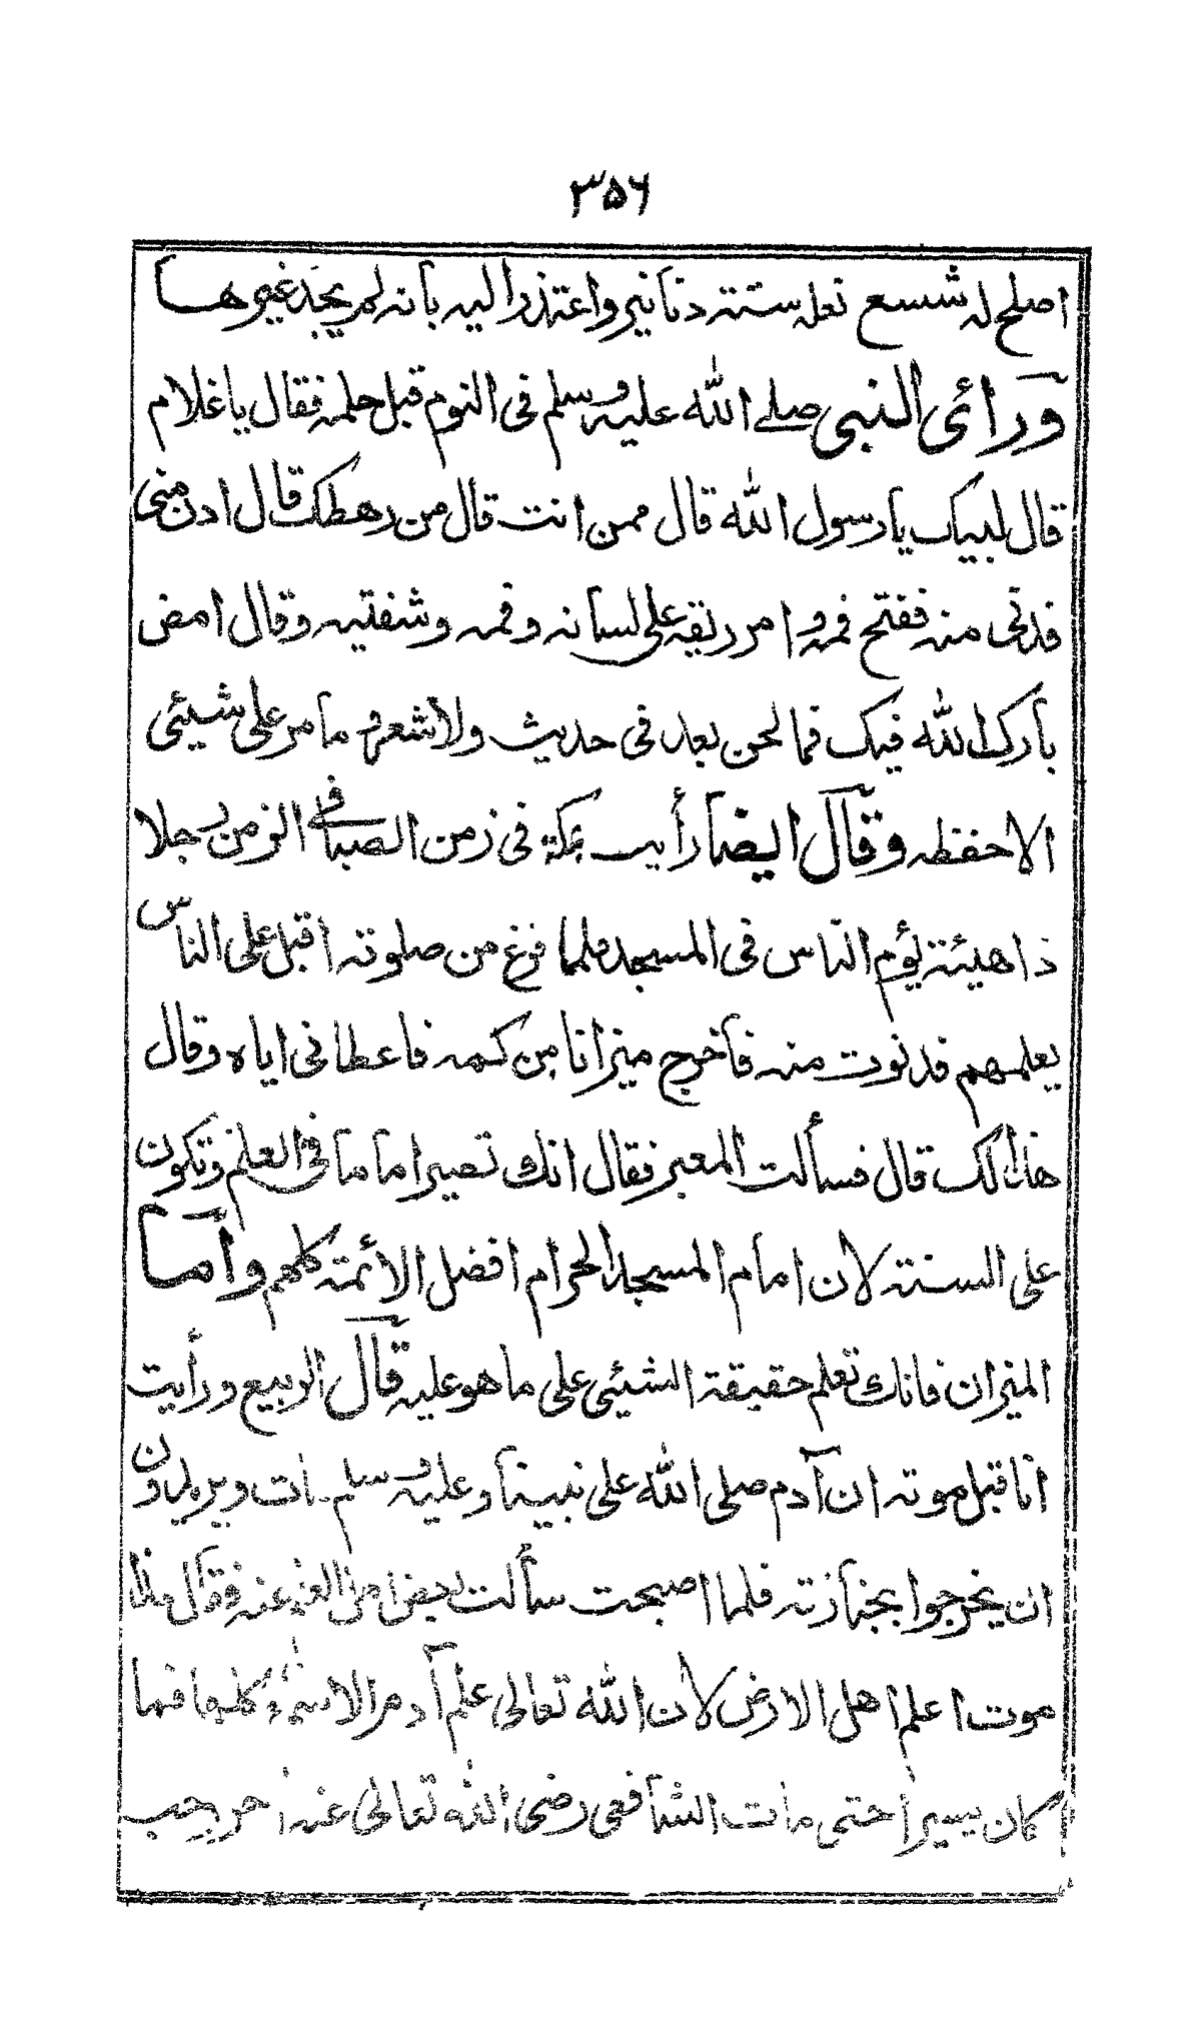 ۳۵۶
اصلح له شسع نعله ستة دنانير واعتذر اليه بانه لم يجد غيرها
ورائ النبى صلے الله عليه وسلم فى النوم قبل حلمه فقال يا غلام
قال لبيك يا رسول الله قال ممن انت قال من رهطك قال ادن منى
فدنى منه ففتح فمه وامر ريقه على لسانه وفمه وشفتيه وقال امض
بارك الله فيك فما لحن بعد فى حديث ولا شعر و ما مر على شيئى
الا حفظه وقال ايضا رأيت بمكة فى زمن الصبا فى النوم رجلا
ذا هيئة يؤم الناس فى المسجد فلما فرغ من صلوته اقبل على الناس
يعلمهم فدنوت منه فاخرج ميزانا من كمه فاعطانى اياه وقال
هذا لك قال فسألت المعبر فقال انك تصير اماما فى العلم وتكون
على السنة لان امام المسجد الحرام افضل الائمة كلهم واما
الميزان فانك تعلم حقيقة الشيئى على ما هو عليه قال الربيع ورأيت
انا قبل موته ان آدم صلى الله على نبينا وعليه وسلم مات ويريدون
ان يخرجوا بجنازته فلما اصبحت سألت بعض اهل العلم عنه فقال هذا
موت اعلم اهل الارض لان الله تعالى علم آدم الاسماء كلها فما
كان يسيرا حتى مات الشافعى رضى الله تعالى عنه اخر رجب